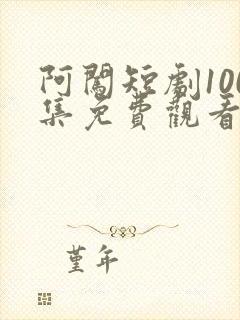 阿闖短劇100
集免費觀看
堇年